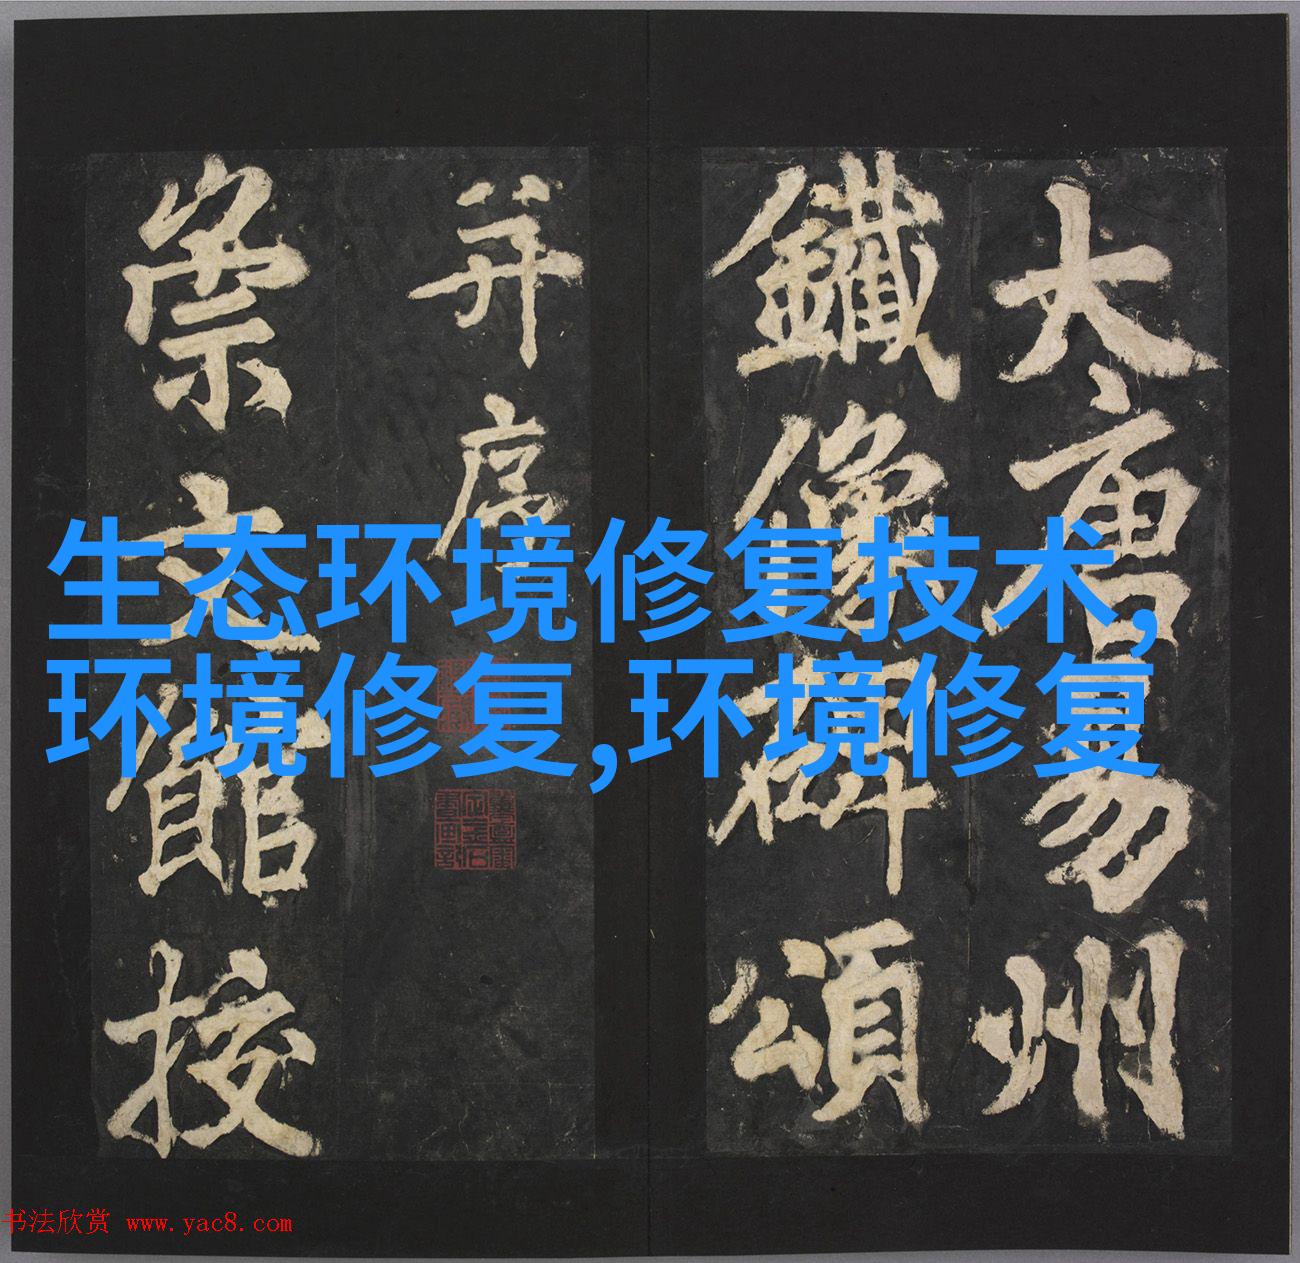 大唐易州
鐵像碑頌
并序
崇文館挍
生态环境修复技术,
环境修复,环境修复
书法欣赏 www.yac8.com